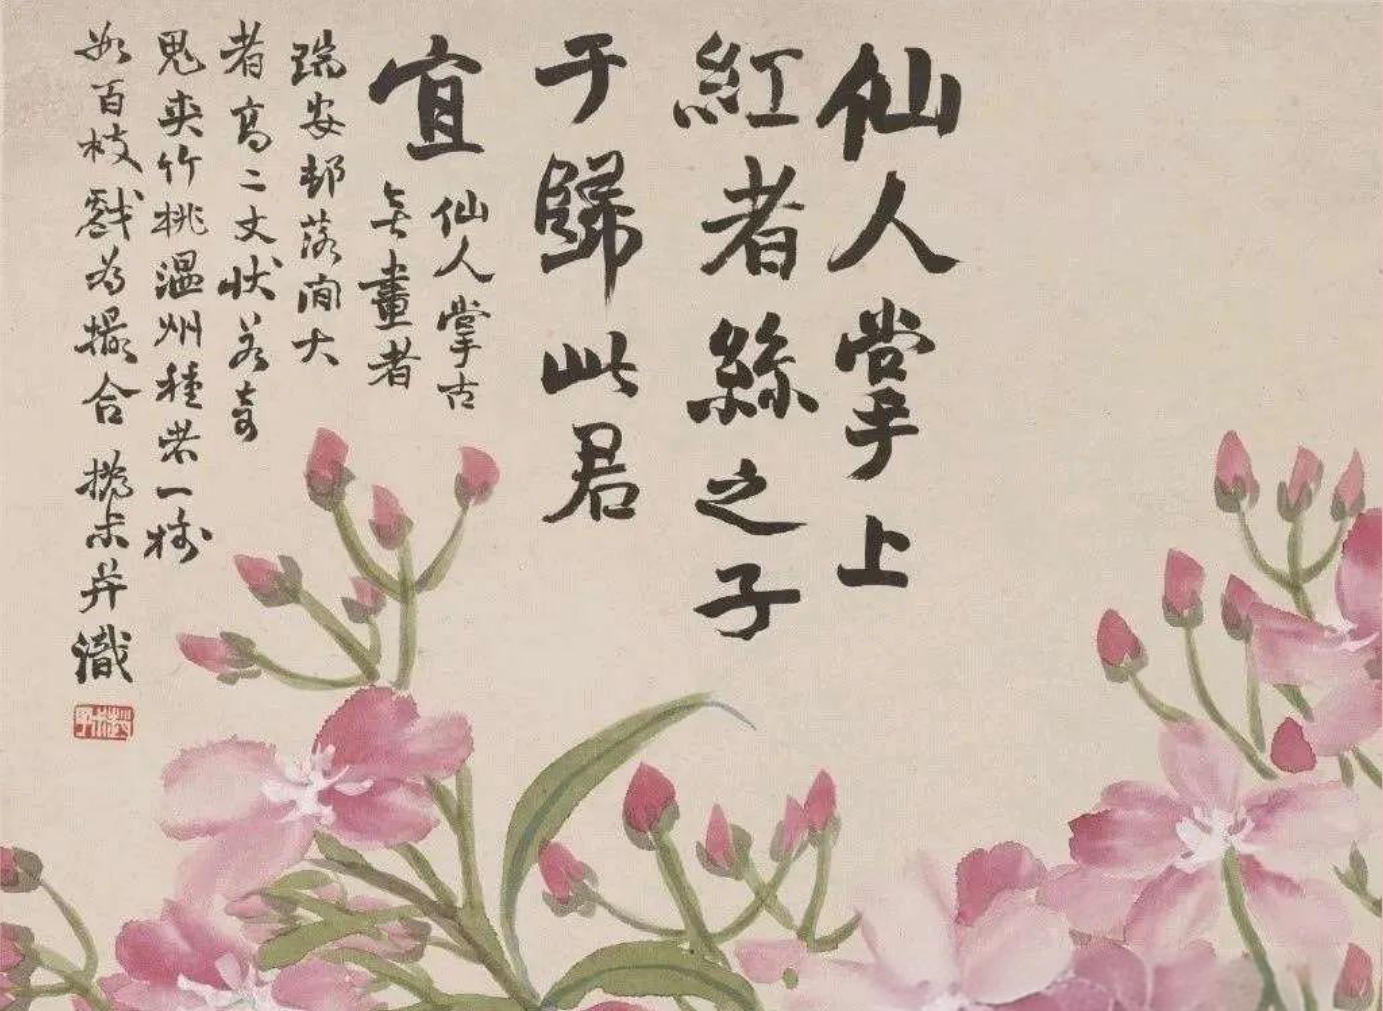 仙人掌上
紅者絲之子
于歸此君
宜
仙人掌古
無畫者
瑞安邨落間大
者高二丈狀若奇
鬼夾竹桃温州種者一樹
數百枝戲為撮合 撝未并識